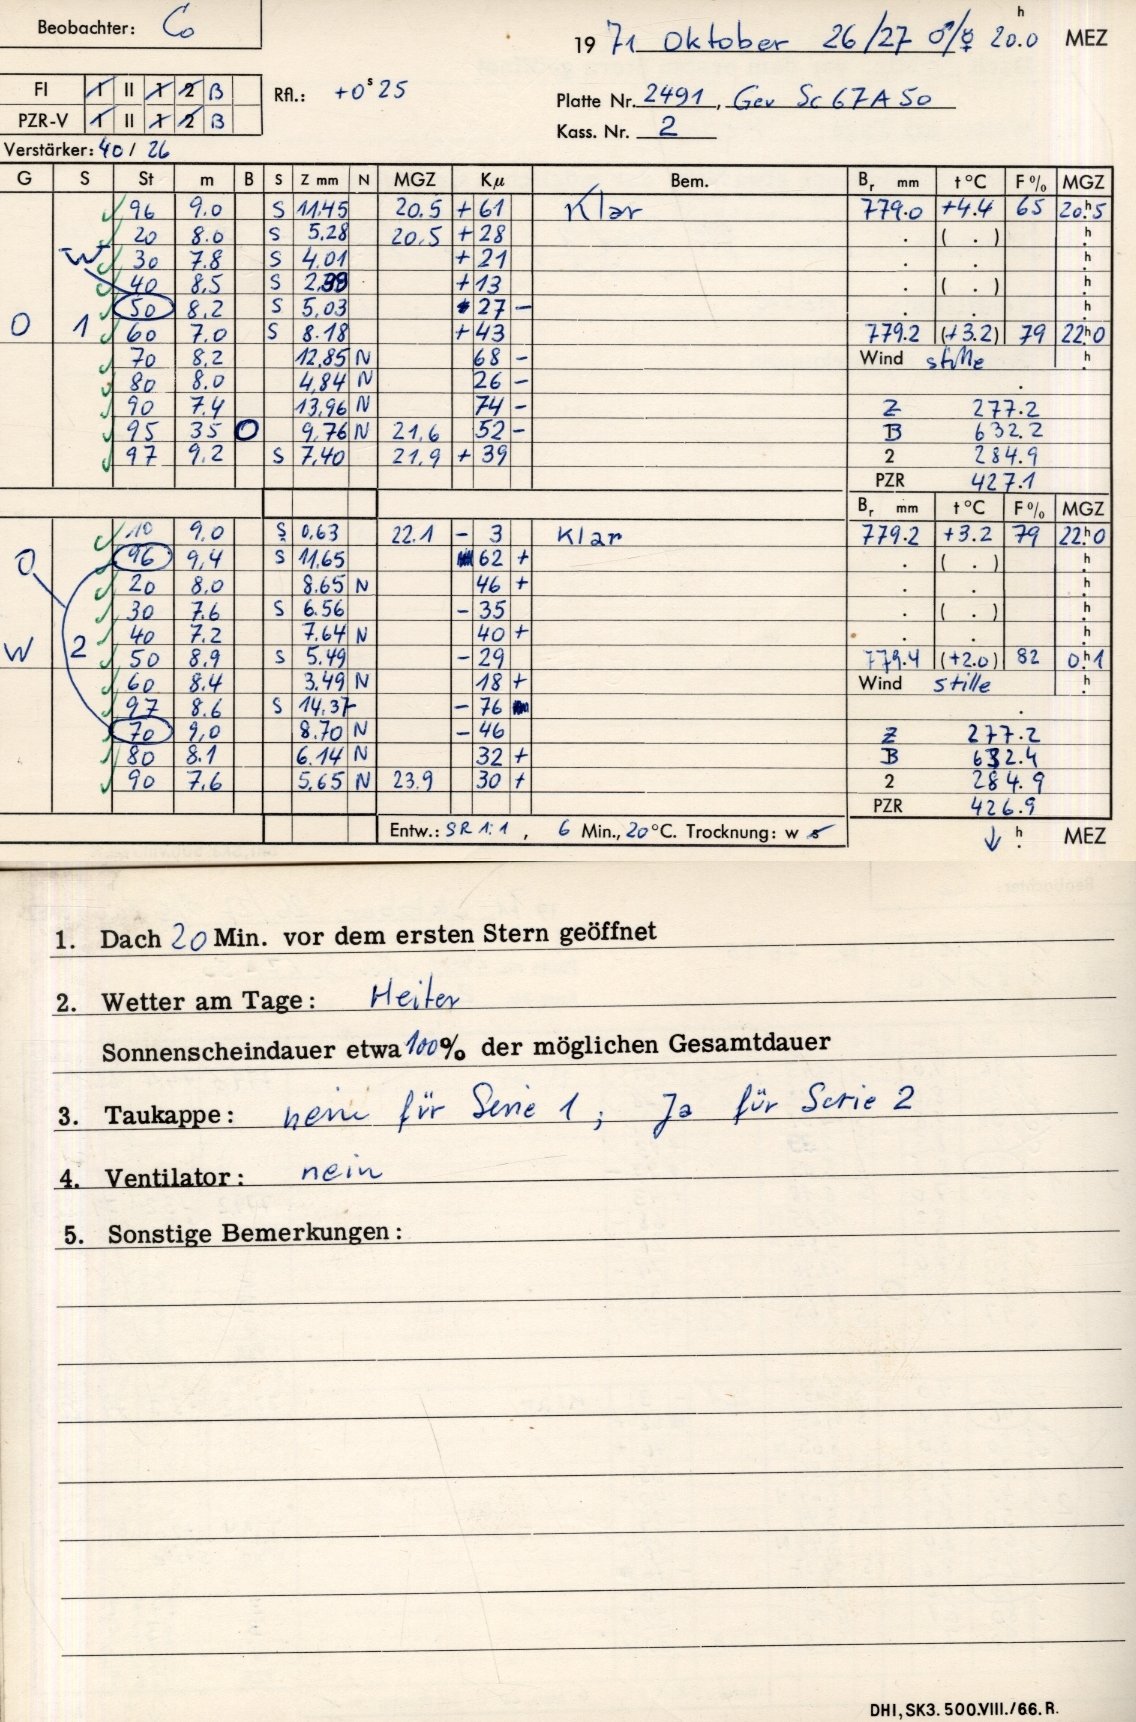 Beobachter: Co
h
19 71 Oktober 26/27 ♂/☿ 20.0 MEZ
FI 1 II 1 2 B Rfl.: +0ˢ25
Platte Nr. 2491, Gev Sc 67 A 50
PZR-V 1 II 1 2 B
Kass. Nr. 2
Verstärker: 40 / 26
G S St m B S Z mm N MGZ Kμ Bem. Br mm t °C F % MGZ
96 9.0 S 11.45 20.5 + 61 Klar 779.0 +4.4 65 20ʰ5
20 8.0 S 5.28 20.5 + 28 . ( . ) h
W 30 7.8 S 4.01 + 21 . . h
40 8.5 S + 13 . ( . ) h
50 8.2 S 5.03 + 27 – . . h
O 1 60 7.0 S 8.18 + 43 779.2 (+3.2) 79 22ʰ0
70 8.2 12.85 N 68 – Wind stille h
80 8.0 4.84 N 26 – .
90 7.4 13.96 N 74 – Z 277.2
95 35 O 9.76 N 21.6 52 – B 632.2
97 9.2 S 7.40 21.9 + 39 2 284.9
PZR 427.1
Br mm t °C F % MGZ
10 9.0 S 0.63 22.1 – 3 Klar 779.2 +3.2 79 22ʰ0
O 96 9.4 S 11.65 62 + . ( . ) h
20 8.0 8.65 N 46 + . . h
30 7.6 S 6.56 – 35 . ( . ) h
40 7.2 7.64 N 40 + . . h
W 2 50 8.9 S 5.49 – 29 779.4 (+2.0) 82 0ʰ1
60 8.4 3.49 N 18 + Wind stille h
97 8.6 S 14.37 – 76 .
70 9.0 8.70 N – 46 Z 277.2
80 8.1 6.14 N 32 + B 632.4
90 7.6 5.65 N 23.9 30 + 2 284.9
PZR 426.9
Entw.: SR 1:1 , 6 Min., 20 °C. Trocknung: w s ↓ h MEZ
1. Dach 20 Min. vor dem ersten Stern geöffnet
2. Wetter am Tage: Heiter
Sonnenscheindauer etwa 100% der möglichen Gesamtdauer
3. Taukappe: nein für Serie 1 ; Ja für Serie 2
4. Ventilator: nein
5. Sonstige Bemerkungen:
DHI, SK3. 500.VIII./66. R.